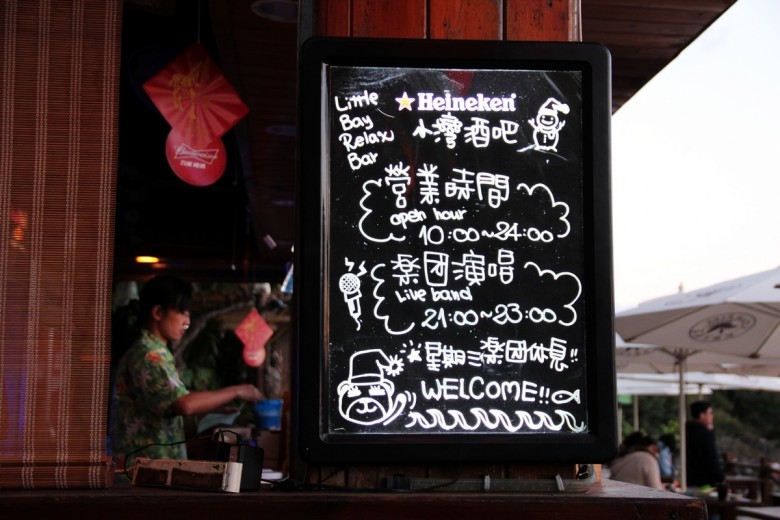 Little
Bay
Relax
Bar
Heineken
小灣酒吧
營業時間
open hour
10:00~24:00
楽团演唱
Live band
21:00~23:00
星期三楽团休息!!
WELCOME!!
Budweiser
百威啤酒